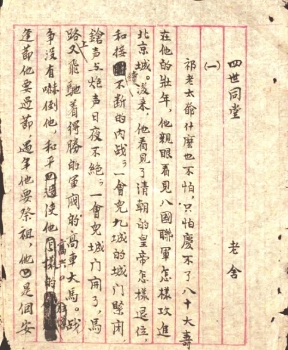 四世同堂
老舍
(一)
祁老太爺什麼也不怕,只怕慶不了八十大壽。
在他的壯年,他親眼看見八國聯軍怎樣攻進
北京城。後來,他看見了清朝的皇帝怎樣退位,
和接續不斷的內戰;一會兒九城的城門緊閉
鎗声与炮声日夜不絕;一會兒城門開了,馬
路上又飛馳着得勝的軍閥的高車大馬。戰
爭沒有嚇倒他,和平使他高興。
逢節他要過節,過年他要祭祖,他是個安